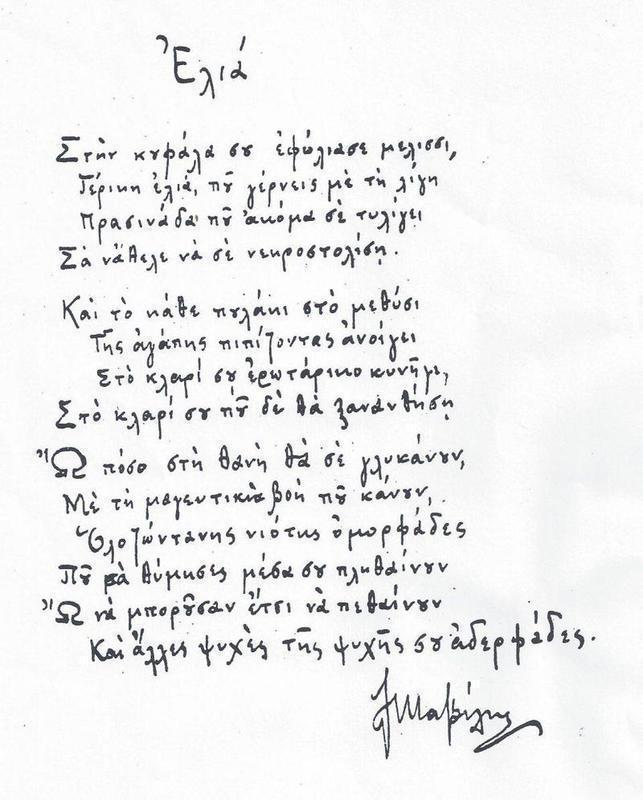 Ἐλιά
Στὴν κυφάλα σου ἐφώλιασε μελίσσι,
Γέρικη ἐλιά, ποῦ γέρνεις μὲ τὴ λίγη
Πρασινάδα ποῦ ἀκόμα σὲ τυλίγει
Σὰ νἄθελε νὰ σὲ νεκροστολίσῃ.
Καὶ τὸ κάθε πουλάκι στὸ μεθύσι
Τῆς ἀγάπης πιπίζοντας ἀνοίγει
Στὸ κλαρί σου ἐρωτάρικο κυνῆγι,
Στὸ κλαρί σου ποῦ δὲ θὰ ξανανθήσῃ
Ὢ πόσο στὴ θανὴ θὰ σὲ γλυκάνουν,
Μὲ τὴ μαγευτικιὰ βοὴ ποῦ κάνουν,
Ὁλοζώντανης νιότης ὁμορφάδες
Ποῦ σὰ θύμησες μέσα σου πληθαίνουν
Ὢ νὰ μποροῦσαν ἔτσι νὰ πεθαίνουν
Καὶ ἄλλες ψυχὲς τῆς ψυχῆς σου ἀδερφάδες.
Μαβίλης